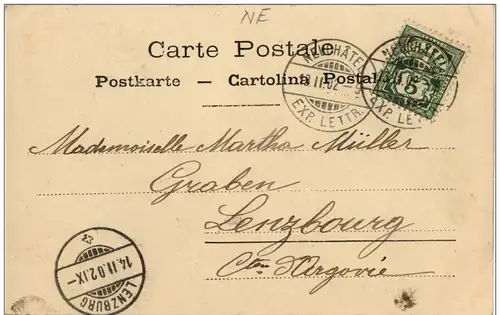 NE
Carte Postale
Postkarte — Cartolina Postale
NEUCHÂTEL
II.02
EXP. LETTR.
NEUCHÂTEL
EXP. LETTR.
5
Mademoiselle Martha Müller
Graben
Lenzbourg
Ctn d'Argovie
14.II.02.IX-
LENZBURG